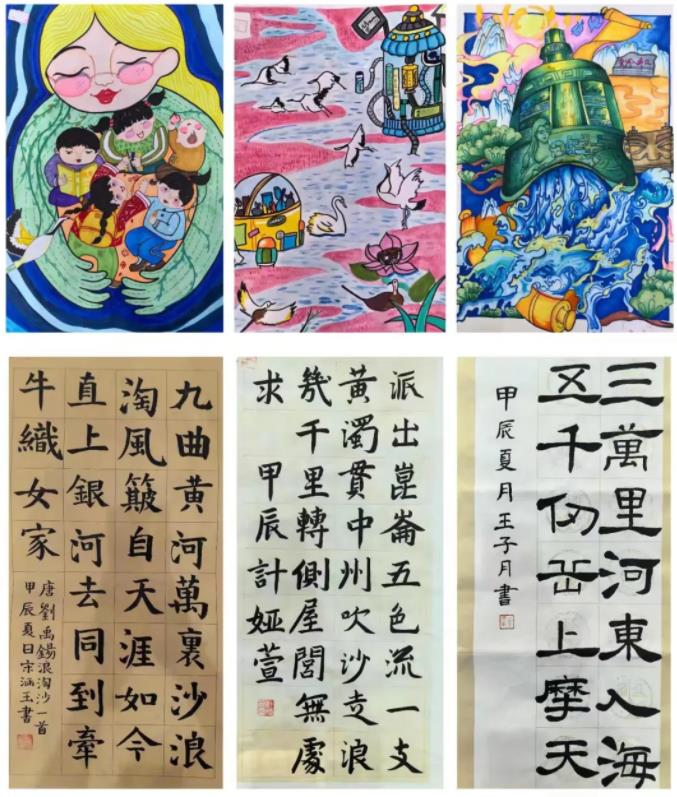 九曲黄河萬裏沙浪
淘風簸自天涯如今
直上銀河去同到牽
牛織女家
唐劉禹錫浪淘沙一首
甲辰夏日宋涵玉書
派出崑崙五色流一支
黄濁貫中州吹沙走浪
幾千里轉側屋閭無處
求
甲辰計婭萱
三萬里河東入海
五千仞岳上摩天
甲辰夏月王子月書